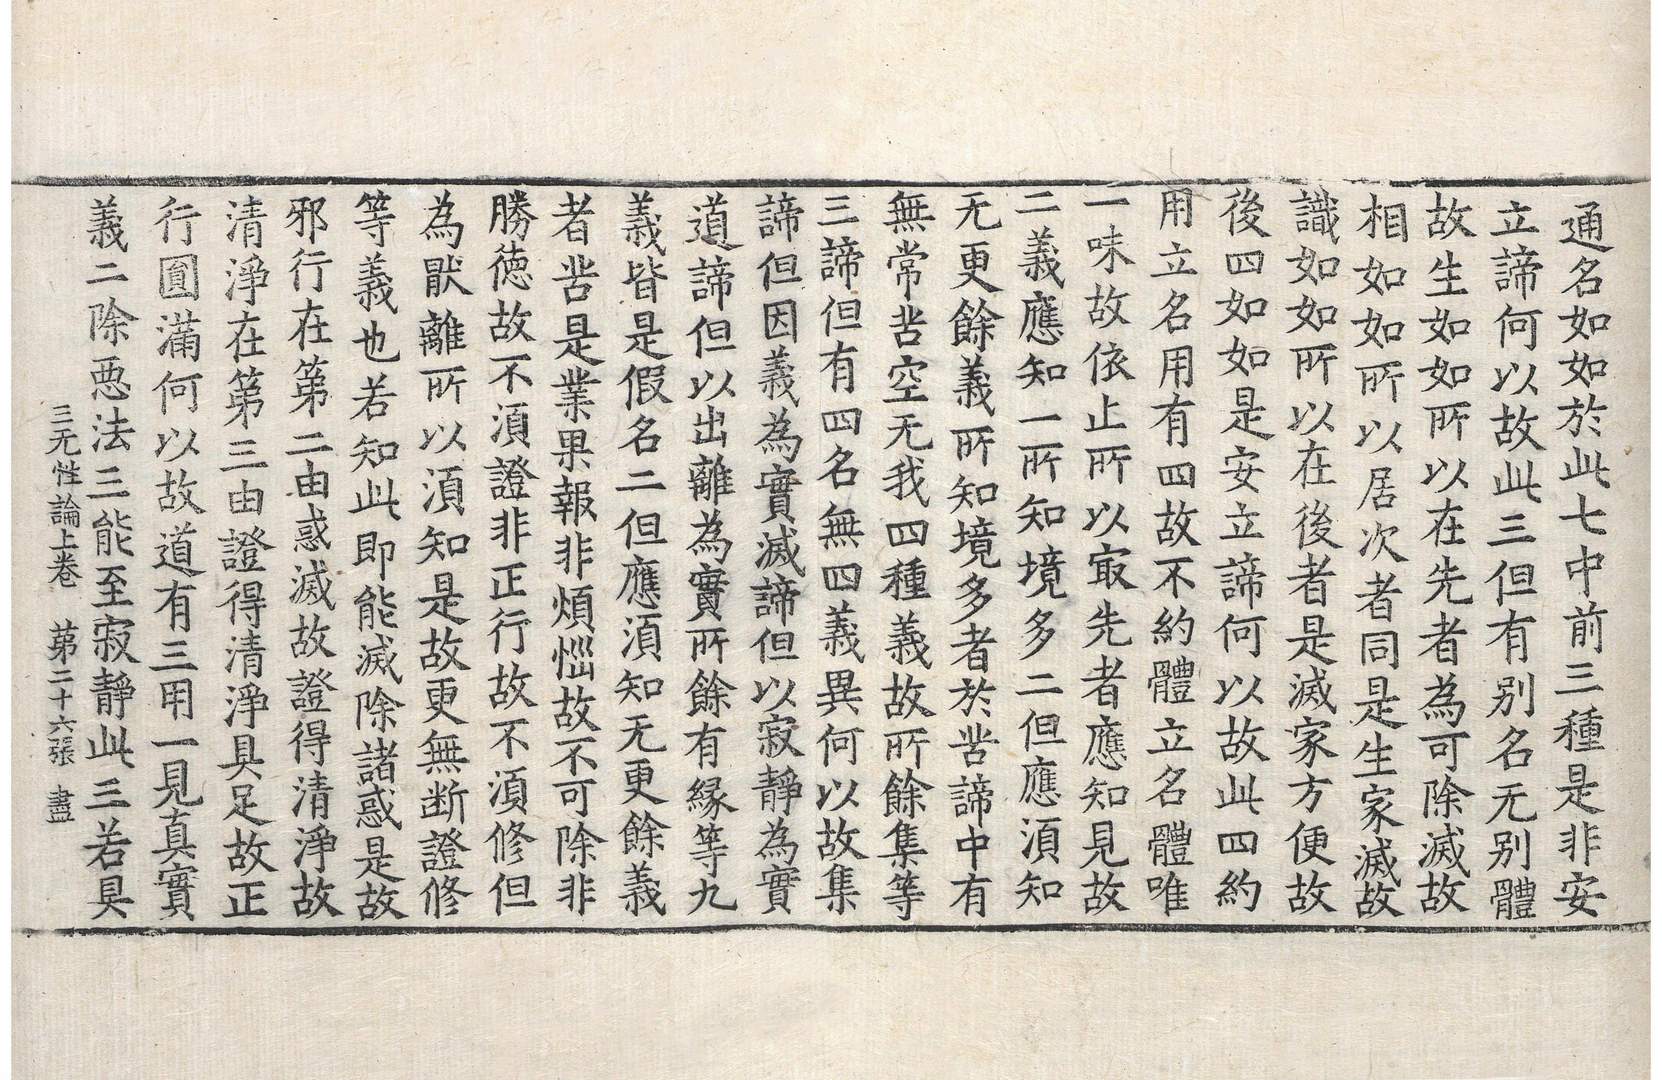 通名如如於此七中前三種是非安
立諦何以故此三但有别名无别體
故生如如所以在先者為可除滅故
相如如所以居次者同是生家滅故
識如如所以在後者是滅家方便故
後四如如是安立諦何以故此四約
用立名用有四故不約體立名體唯
一味故依止所以㝡先者應知見故
二義應知一所知境多二但應須知
无更餘義所知境多者於苦諦中有
無常苦空无我四種義故所餘集等
三諦但有四名無四義異何以故集
諦但因義為實滅諦但以寂靜為實
道諦但以出離為實所餘有緣等九
義皆是假名二但應須知无更餘義
者苦是業果報非煩惱故不可除非
勝徳故不須證非正行故不須修但
為猒離所以須知是故更無断證修
等義也若知此即能滅除諸惑是故
邪行在第二由惑滅故證得清淨故
清淨在第三由證得清淨具足故正
行圎滿何以故道有三用一見真實
義二除惡法三能至寂靜此三若具
三无性論上卷　第二十六張　盡